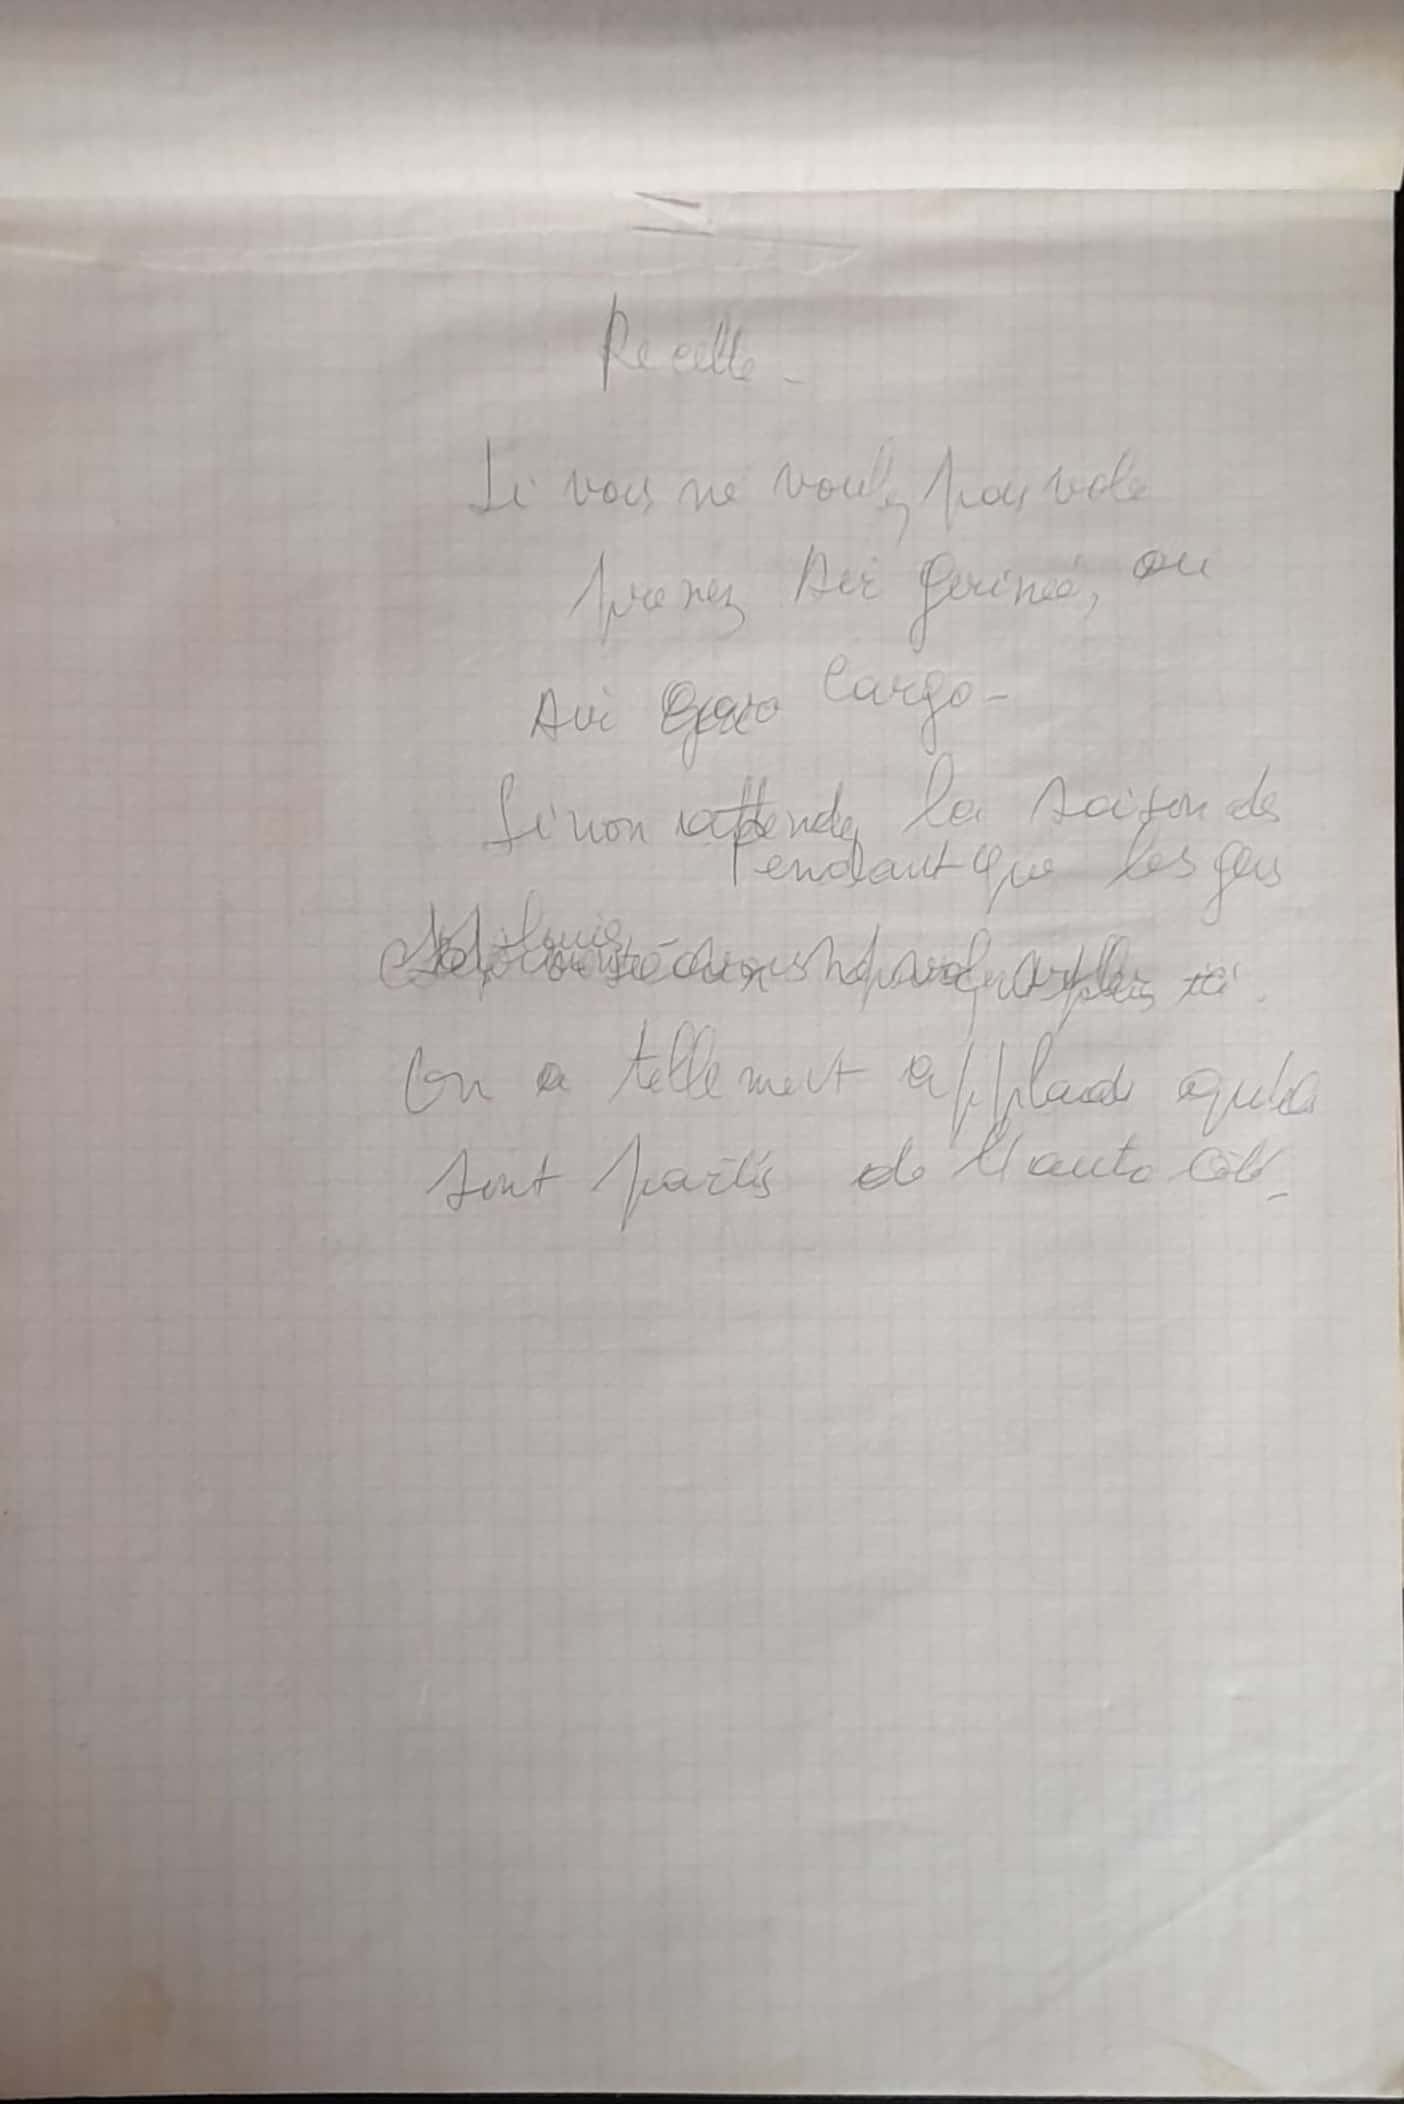 Recette -
Si vous ne voulez pas voler
prenez Air Guinée, ou
Air Cargo -
Sinon attendez la saison des
Pendant que les gens
pluies
On a tellement applaudi qu'ils
sont partis de l'autre côté -